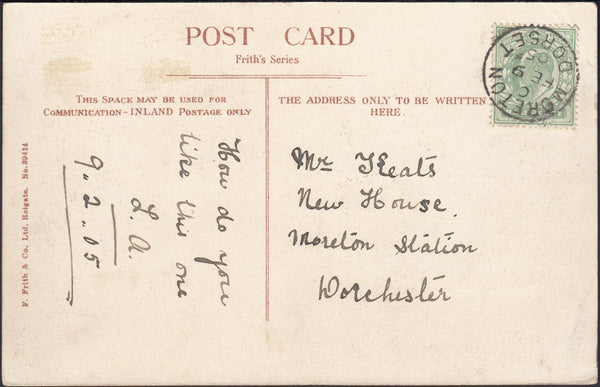 POST CARD
Frith's Series
THIS SPACE MAY BE USED FOR
COMMUNICATION - INLAND POSTAGE ONLY
THE ADDRESS ONLY TO BE WRITTEN
HERE.
How do you
like this one
L. A.
9.2.05
Mr I Keats
New House.
Moreton Station
Dorchester
F. Frith & Co., Ltd., Reigate. No. 39414
MORETON
DORSET
C
FE 9
05